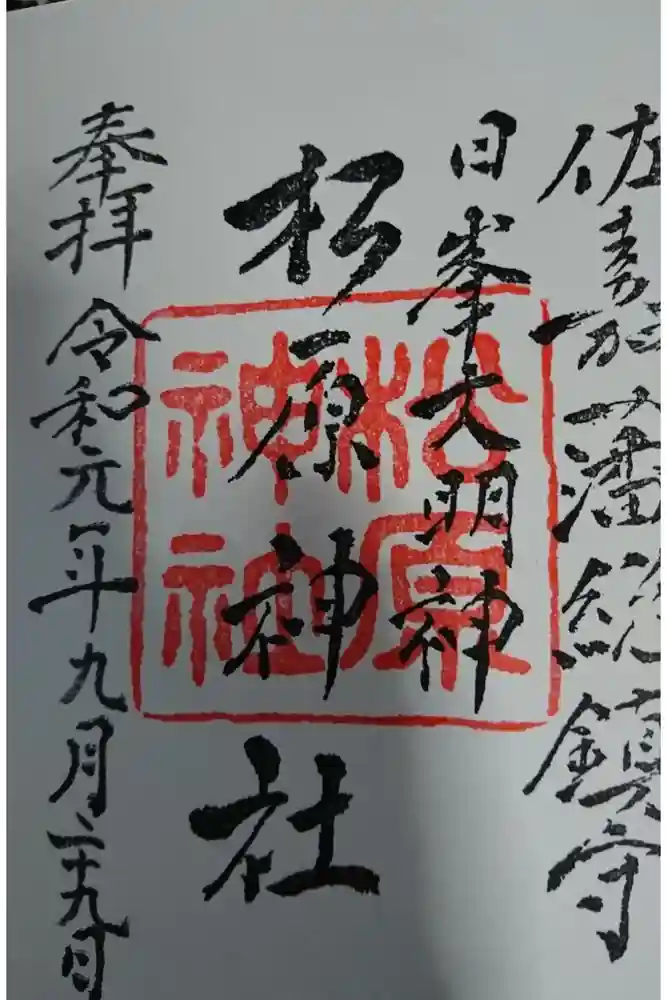 佐嘉藩総鎮守
日峯大明神
松原神社
奉拝 令和元年九月二十九日
松原
神社